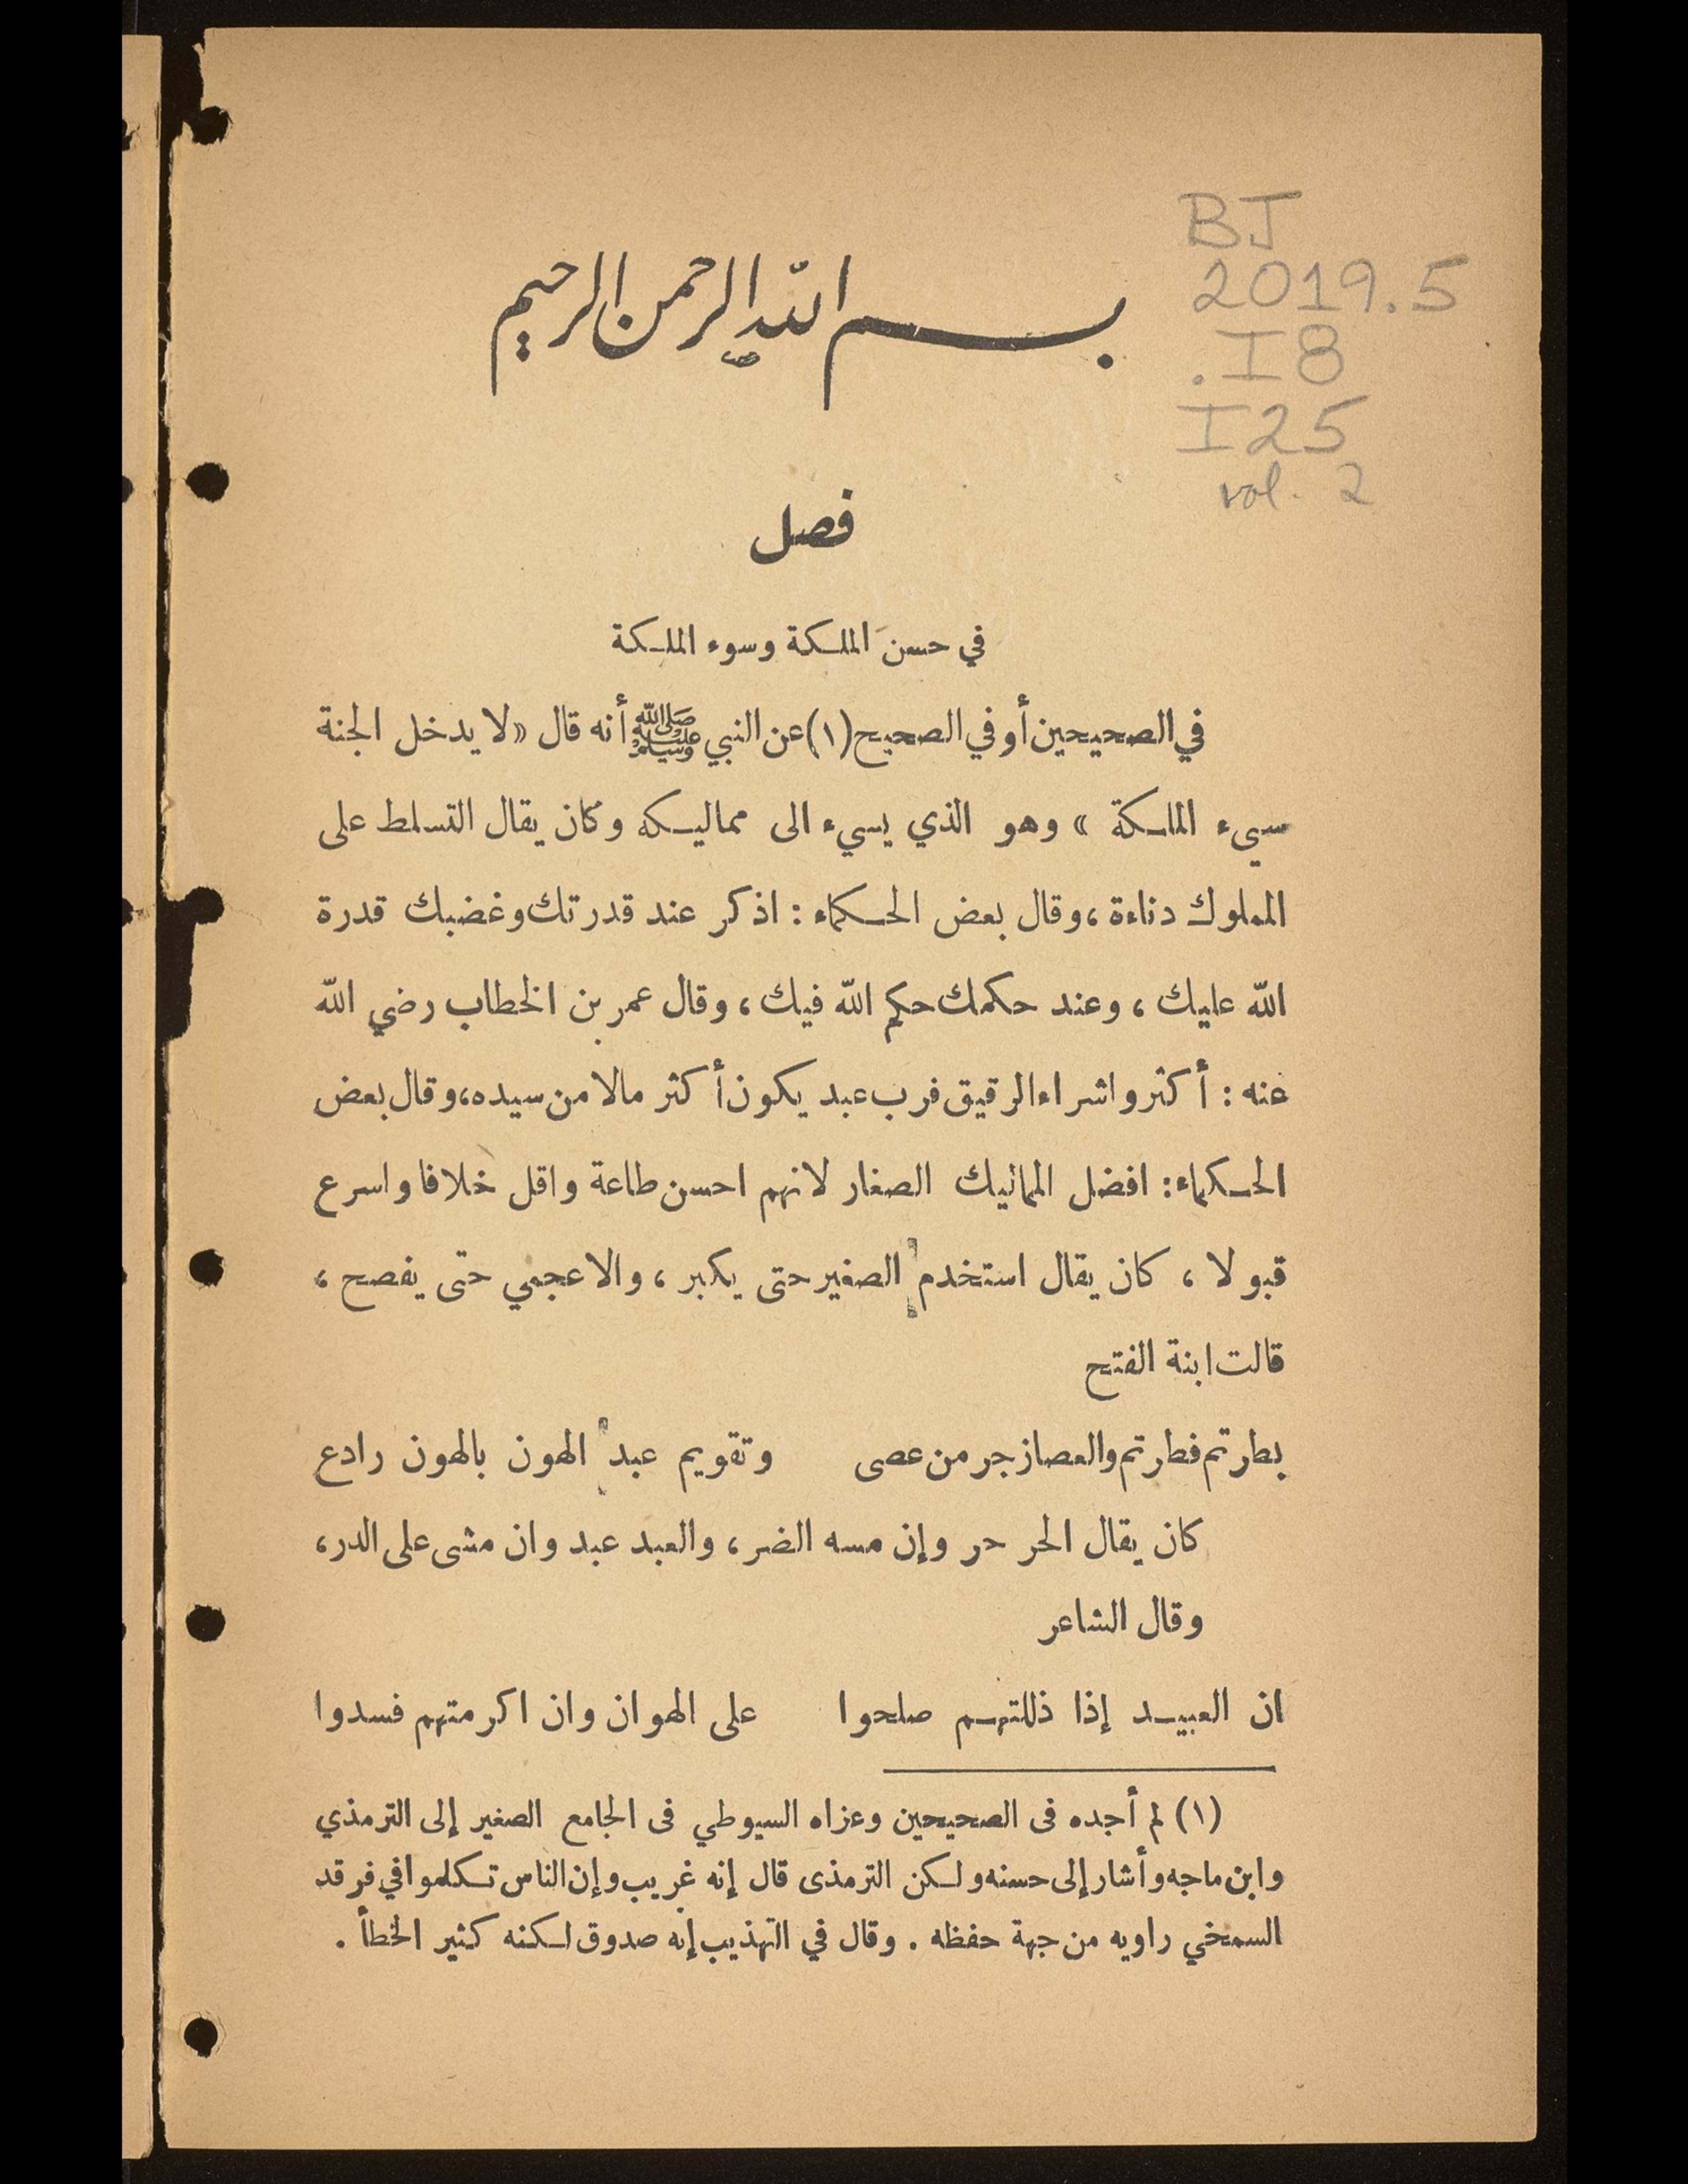 BJ
2019.5
.I8
I25
vol. 2
بسم الله الرحمن الرحيم
فصل
في حسن الملكة وسوء الملكة
في الصحيحين أو في الصحيح (١) عن النبي ﷺ أنه قال « لا يدخل الجنة
سيء الملكة » وهو الذي يسيء الى مماليكه وكان يقال التسلط على
المملوك دناءة ، وقال بعض الحكماء : اذكر عند قدرتك وغضبك قدرة
الله عليك ، وعند حكمك حكم الله فيك ، وقال عمر بن الخطاب رضي الله
عنه : أكثروا شراء الرقيق فرب عبد يكون أكثر مالا من سيده ، وقال بعض
الحكماء : افضل المماليك الصغار لانهم احسن طاعة واقل خلافا واسرع
قبولا ، كان يقال استخدم الصغير حتى يكبر ، والاعجمي حتى يفصح ،
قالت ابنة الفتح
بطرتم فطرتم والعصا زجر من عصى وتقويم عبد الهون بالهون رادع
كان يقال الحر حر وإن مسه الضر ، والعبد عبد وان مشى على الدر ،
وقال الشاعر
ان العبيد إذا ذللتهم صلحوا على الهوان وان اكرمتهم فسدوا
(١) لم أجده فى الصحيحين وعزاه السيوطي فى الجامع الصغير إلى الترمذي
وابن ماجه وأشار إلى حسنه ولكن الترمذى قال إنه غريب وإن الناس تكلموا في فرقد
السمخي راويه من جهة حفظه . وقال في التهذيب إنه صدوق لكنه كثير الخطأ .